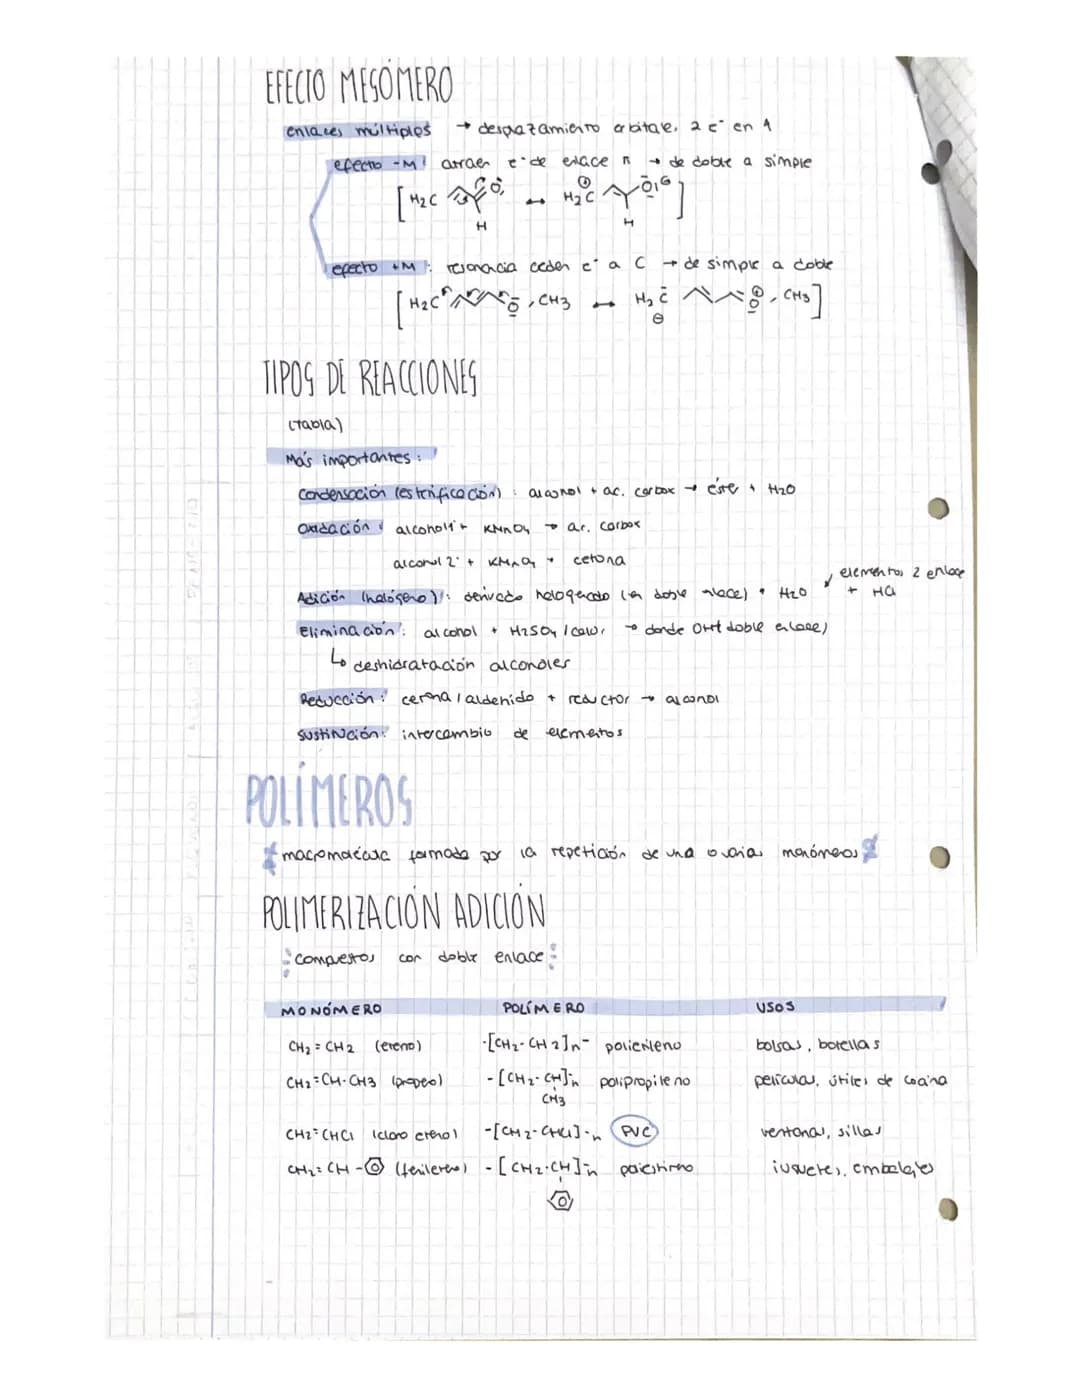 EFECTO MESÓMERO
enlaces múltiples → desplazamiento orbitale, 2 e⁻ en 1
efecto -M: atraen e⁻ de enlace π → de doble a simple
[H₂C O, H ↔ H₂C⊕ O|⊖ H]
efecto +M: resonancia ceden e⁻ a C → de simple a doble
[H₂C O, CH3 ↔ H₂C⊖ O⊕, CH₃]
TIPOS DE REACCIONES
(tabla)
Más importantes:
Condensación (esterificación): alcohol + ac. carbox → éste + H₂O
Oxidación: alcohol 1° + KMnO₄ → ac. carbox
alcohol 2° + KMnO₄ → cetona
elementos 2 enlace
Adición (halógeno): derivado halogenado (en doble enlace) + H₂O + HCl
Eliminación: alcohol + H₂SO₄ / calor → donde OH+ doble enlace)
↳ deshidratación alcoholes
Reducción: cetona / aldehido + reductor → alcohol
Sustitución: intercambio de elementos
POLÍMEROS
* macromolécula formada por la repetición de una o varias monómeros *
POLIMERIZACIÓN ADICIÓN
compuestos con doble enlace
MONÓMERO POLÍMERO USOS
CH₂=CH₂ (eteno) -[CH₂-CH₂]n- polietileno bolsas, botellas
CH₂=CH-CH₃ (propeo) -[CH₂-CH]n polipropileno películas, útiles de cocina
CH₃
CH₂=CHCl (cloro eteno) -[CH₂-CHCl]-n PVC ventanas, sillas
CH₂=CH- (fenileteno) -[CH₂-CH]n poiestireno juguetes, embalajes